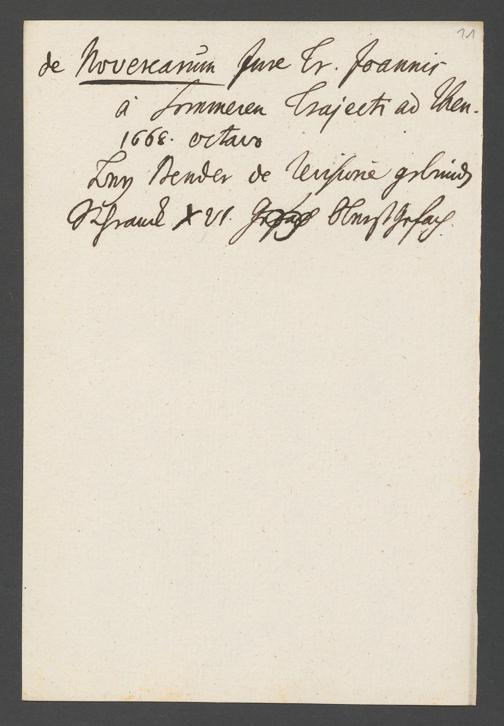 11
de Novercarum Jure Tr. Joannis
à Sommeren Trajecti ad Rhen.
1668. octavo
Bender de Revisione gebunds
Schranck XVI.